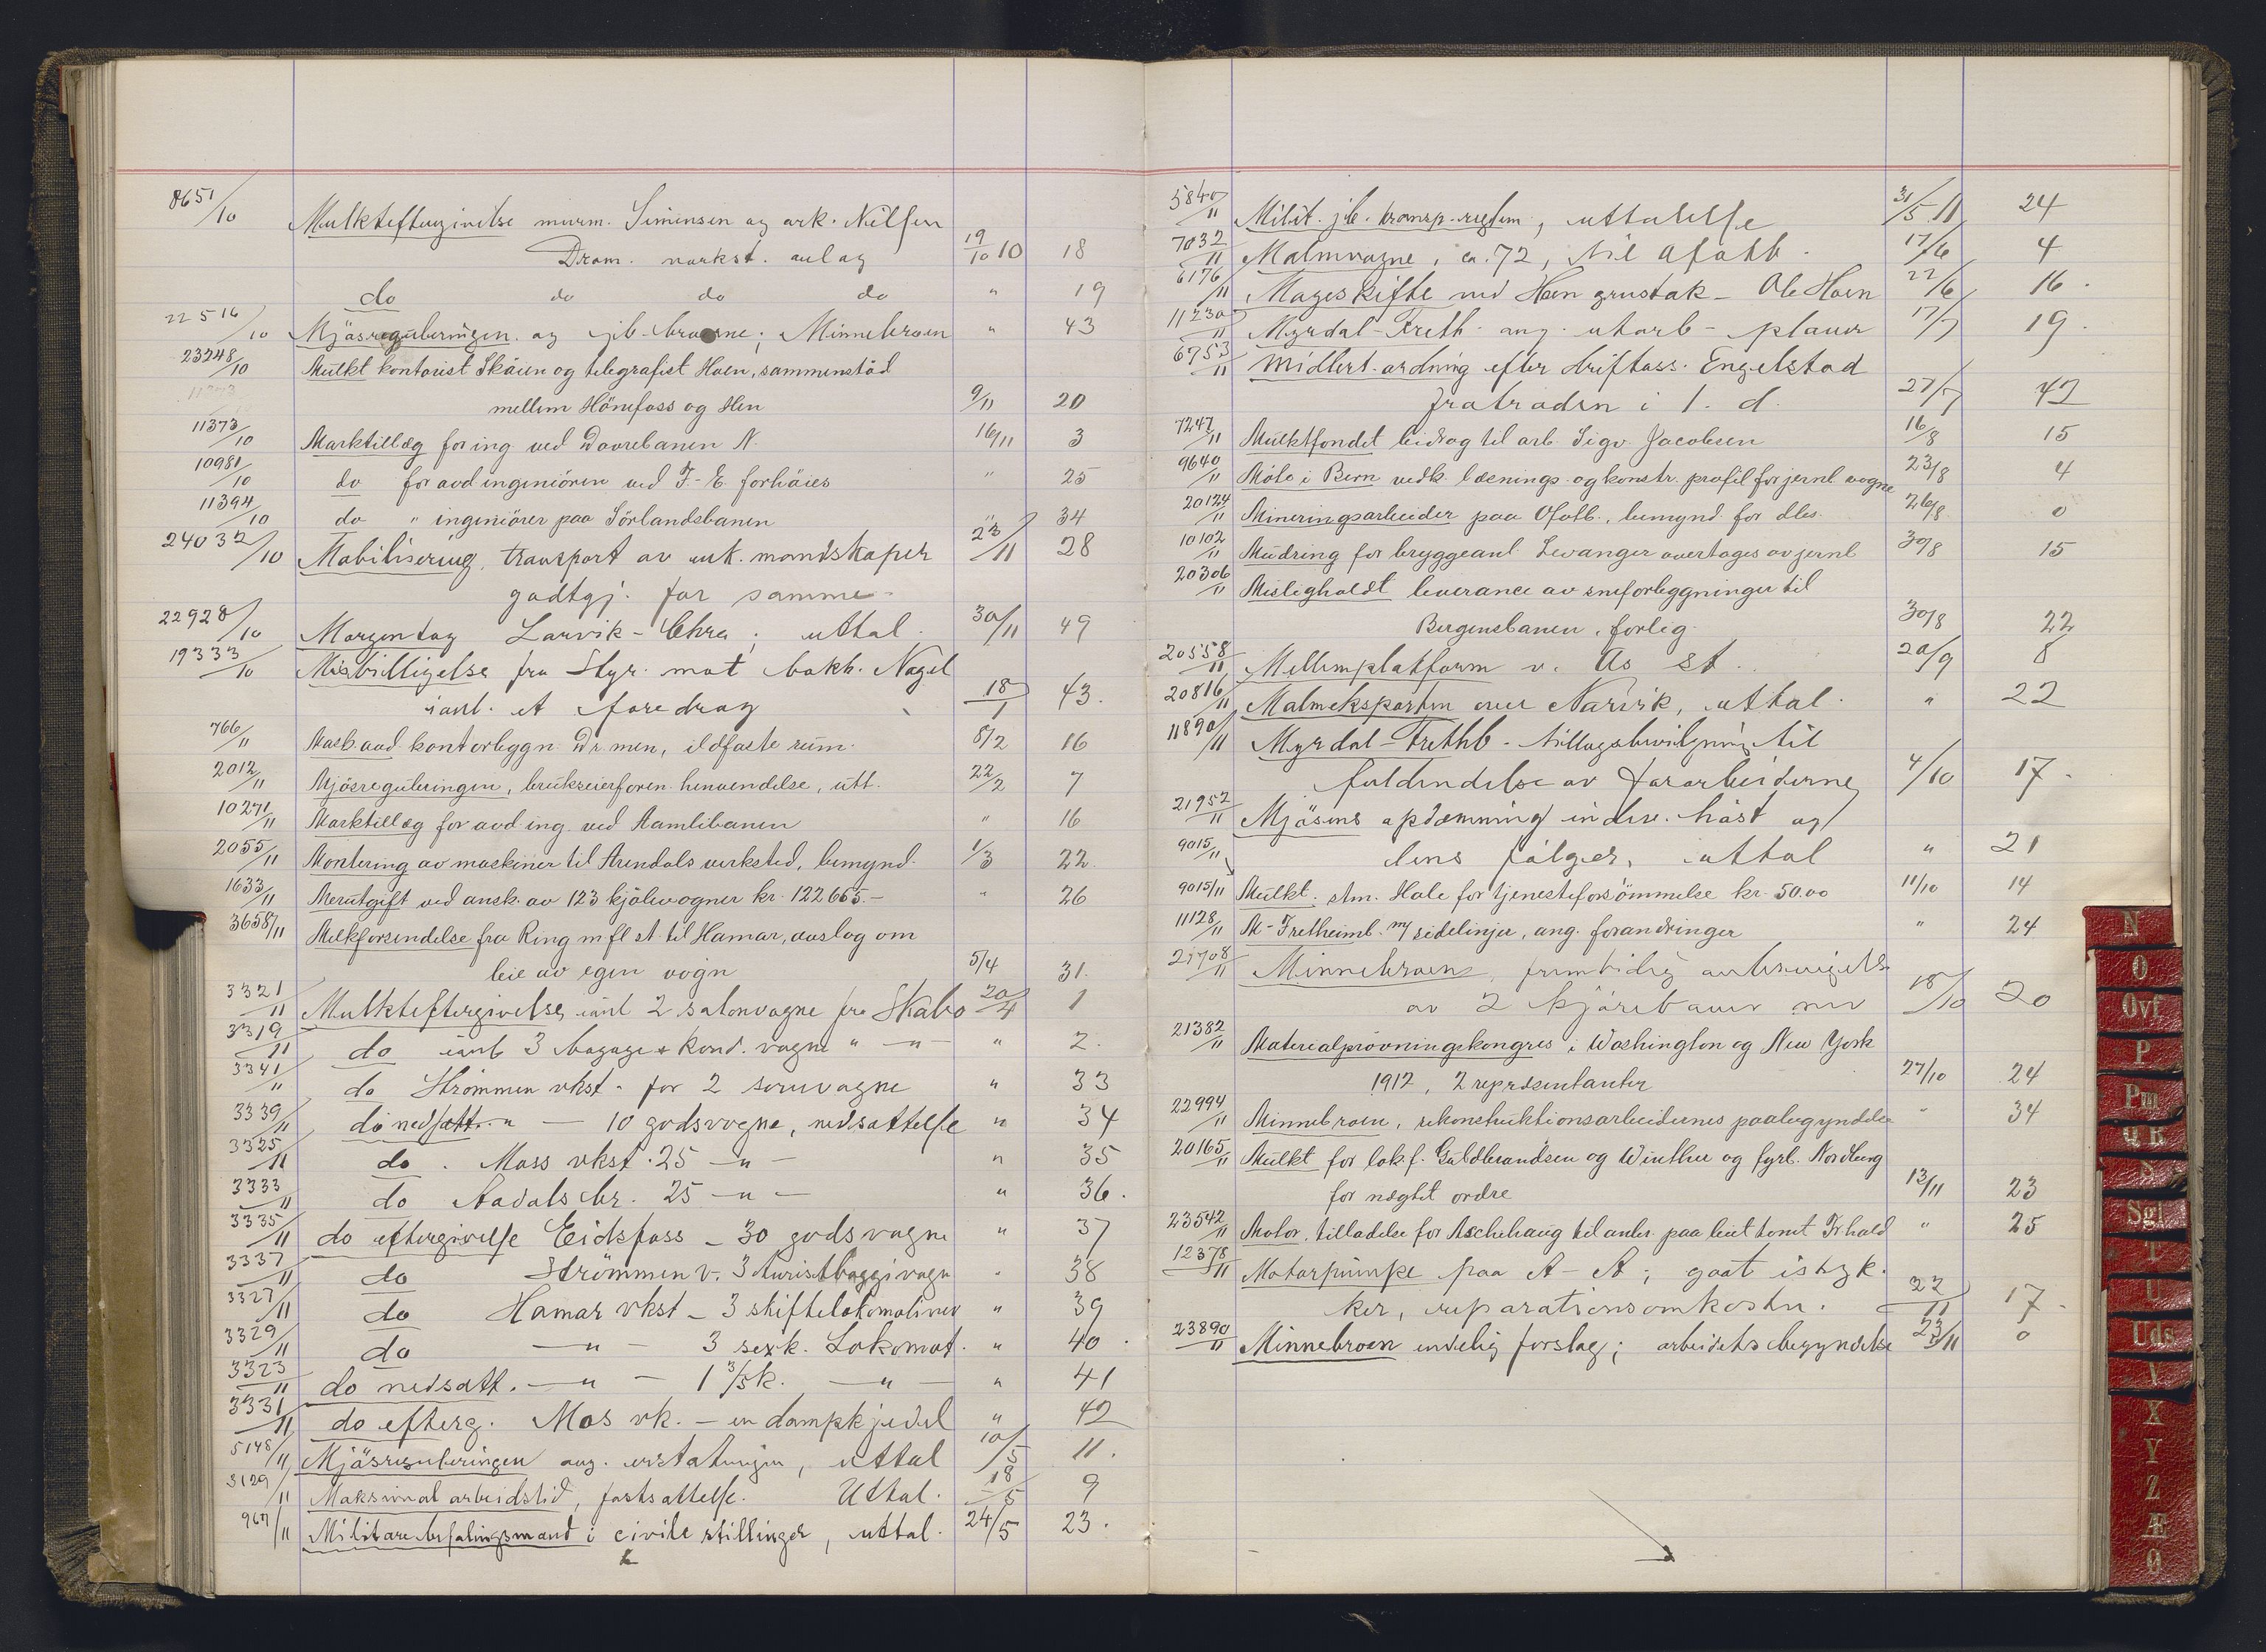 8651/10 Mulkteftergivelse murm. Simensen og ark. Nilsen
Dram. verkst. anlæg 19/10 10 18
do do do do " 19
22516/10 Mjøsreguleringen og jb. broerne; Minnebroen " 43
23248/10 Mulkt kontorist Skåien og telegrafist Hoen, sammenstöd
mellem Hönefoss og Hen 9/11 20
11373/10 Marktillæg for ing. ved Dovrebanen N. 16/11 3
10981/10 do for avd ingeniören ved T.-E. forhöies " 25
11394/10 do " ingeniörer paa Sörlandsbanen " 34
24032/10 Mobilisering, transport av utk. mandskaper 23/11 28
godtgj. for samme
22928/10 Morgentog Larvik - Chra; uttal. 30/11 49
19333/10 Misbilligelse fra Styr. mot bokh. Nagel
ianl. et foredrag 18/1 43.
766/11 Mask.avd. kontorbygn. Dr.men, ildfaste rum. 8/2 16
2012/11 Mjösreguleringen, brukseierforen. henvendelse, utt. 22/2 7
10271/11 Marktillæg for avd ing. ved Aamlibanen " 16
2055/11 Montering av maskiner til Arendals verksted, bemynd. 1/3 22.
1633/11 Merutgift ved ansk. av 123 kjölevogner kr. 122665.- " 26
3658/11 Melkforsendelse fra Ring m fl st. til Hamar, avslag om
leie av egen vogn 5/4 31.
3321/11 Mulkteftergivelse ianl 2 salonvogne fra Skabo 20/4 1
3319/11 do ianl 3 bagage & kond. vogne " — " — " 2.
3341/11 do Strömmen vkst. for 2 sovevogne " 33
3339/11 do nedsatt. " — 10 godsvogne, nedsættelse " 34
3325/11 do . Moss vkst. 25 — " — " 35
3333/11 do Aadals br. 25 — " — " 36.
3335/11 do eftergivelse Eidsfoss - 30 godsvogne " 37
3337/11 do Strömmen v. 3 turistboggivogn " 38
3327/11 do Hamar vkst - 3 skiftelokomotiver " 39
3329/11 do — " — 3 sexk. Lokomot. " 40.
3323/11 do nedsatt. — " — 1 3/5 k. — " — " 41
3331/11 do efterg. Mos vk. - en dampkjedel " 42
5148/11 Mjösreguleringen ang. erstatningen, uttal 10/5 11.
3129/11 Maksimal arbeidstid, fastsættelse. Uttal. 18/5 9
967/11 Militære befalingsmænd i civile stillinger, uttal. 24/5 23.
5840/11 Milit. jb. transp. reglem., uttalelse 31/5 11 24
7032/11 Malmvogne, ca. 72, til Ofotb. 17/6 4
6176/11 Mageskifte ved Hen grustak - Ole Hoen 22/6 16.
11230/11 Myrdal-Freth. ang. utarb - planer 17/7 19.
6753/11 Midlert. ordning efter driftass. Engelstad
fratræden i 1. d. 27/7 42
7247/11 Mulktfondet bidrag til arb. Sigv. Jacobsen 16/8 15
9640/11 Möte i Bern vedk. læsnings- og konstr. profil for jernb vogne 23/8 4
20124/11 Mineringsarbeider paa Ofotb., bemynd. for dbs. 26/8 0
10102/11 Mudring for bryggeanl Levanger overtages av jernb 30/8 15
20306/11 Misligholdt leverance av sneforbygninger til
Bergensbanen, forlig 30/8 22
20558/11 Mellemplatform v. Ås st. 20/9 8
20816/11 Malmeksporten over Narvik, uttal. " 22
11890/11 Myrdal-Frethb. tillægsbevilgning til
fuldendelse av forarbeiderne 4/10 17.
21952/11 Mjösens opdæmning inder. höst og
9015/11 dens fölger, uttal " 21
9015/11 Mulkt. stm. Hole for tjenesteforsömmelse kr. 50.00 11/10 14
11128/11 M-Fretheimb. m/ sidelinjer, ang. forandringer " 24
21708/11 Minnebroen, fremtidig
av 2 kjörebaner 18/10 20
21382/11 Materealprövningskongres i Washington og New York
1912, 2 repræsentanter 27/10 24
22994/11 Minnebroen, rekonstruktionsarbeidernes paabegyndelse " 34
20165/11 Mulkt for lokf. Guldbrandsen og Winther og fyrb. Nordberg
for nægtet ordre 13/11 23
23542/11 Motor, tilladelse for Aschehaug til anbr. paa leiet tomt Fr.hald " 25
12378/11 Motorpumpe paa A-A; gaat istyk.
ker, reparationsomkostn. 22/11 17.
23890/11 Minnebroen endelig forslag; arbeidets begyndelse 23/11 0
N
O
Ovf
P
Pm
Q R
S
Sgt
T
U
Uds
V
X
Y
Z
Æ
Ø